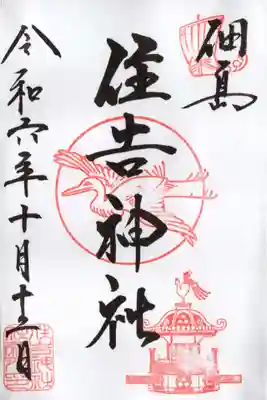 佃島
住吉神社
令和六年十月十二日